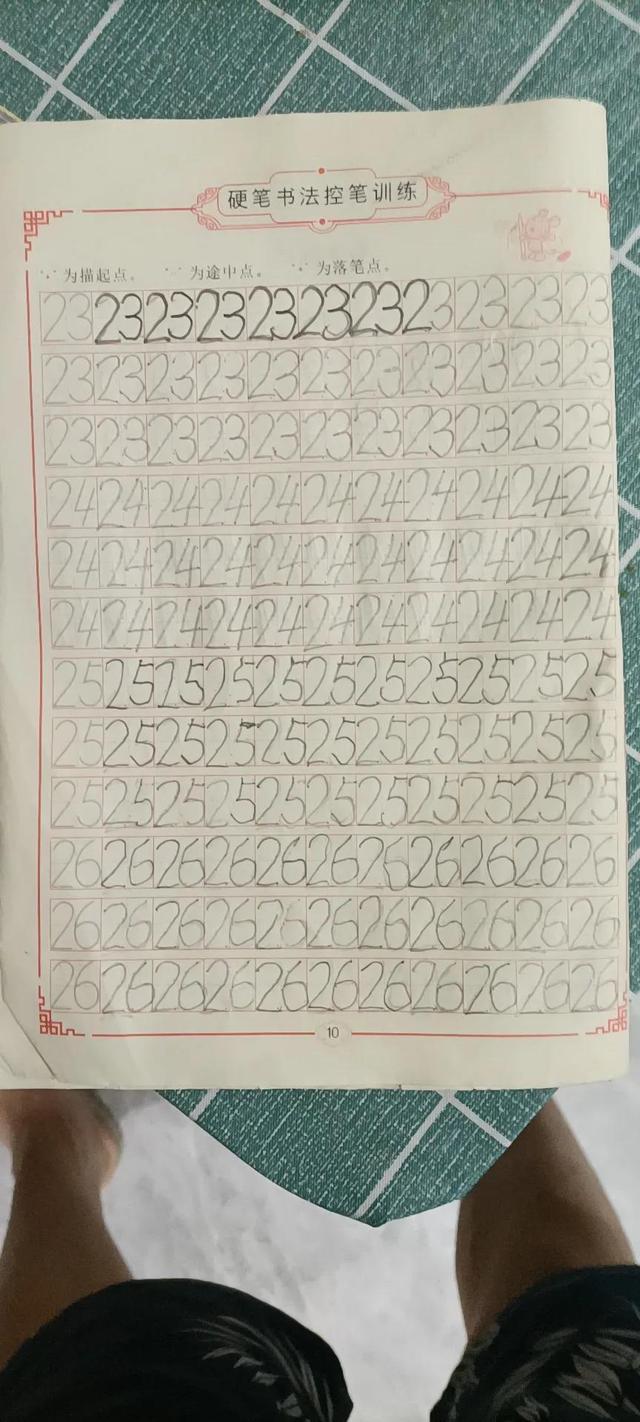 硬笔书法控笔训练
为描起点。 为途中点。 为落笔点。
23 23 23 23 23 23 23 23 23 23 23
23 23 23 23 23 23 23 23 23 23 23
23 23 23 23 23 23 23 23 23 23 23
24 24 24 24 24 24 24 24 24 24 24
24 24 24 24 24 24 24 24 24 24 24
24 24 24 24 24 24 24 24 24 24 24
25 25 25 25 25 25 25 25 25 25 25
25 25 25 25 25 25 25 25 25 25 25
25 25 25 25 25 25 25 25 25 25 25
26 26 26 26 26 26 26 26 26 26 26
26 26 26 26 26 26 26 26 26 26 26
26 26 26 26 26 26 26 26 26 26 26
10